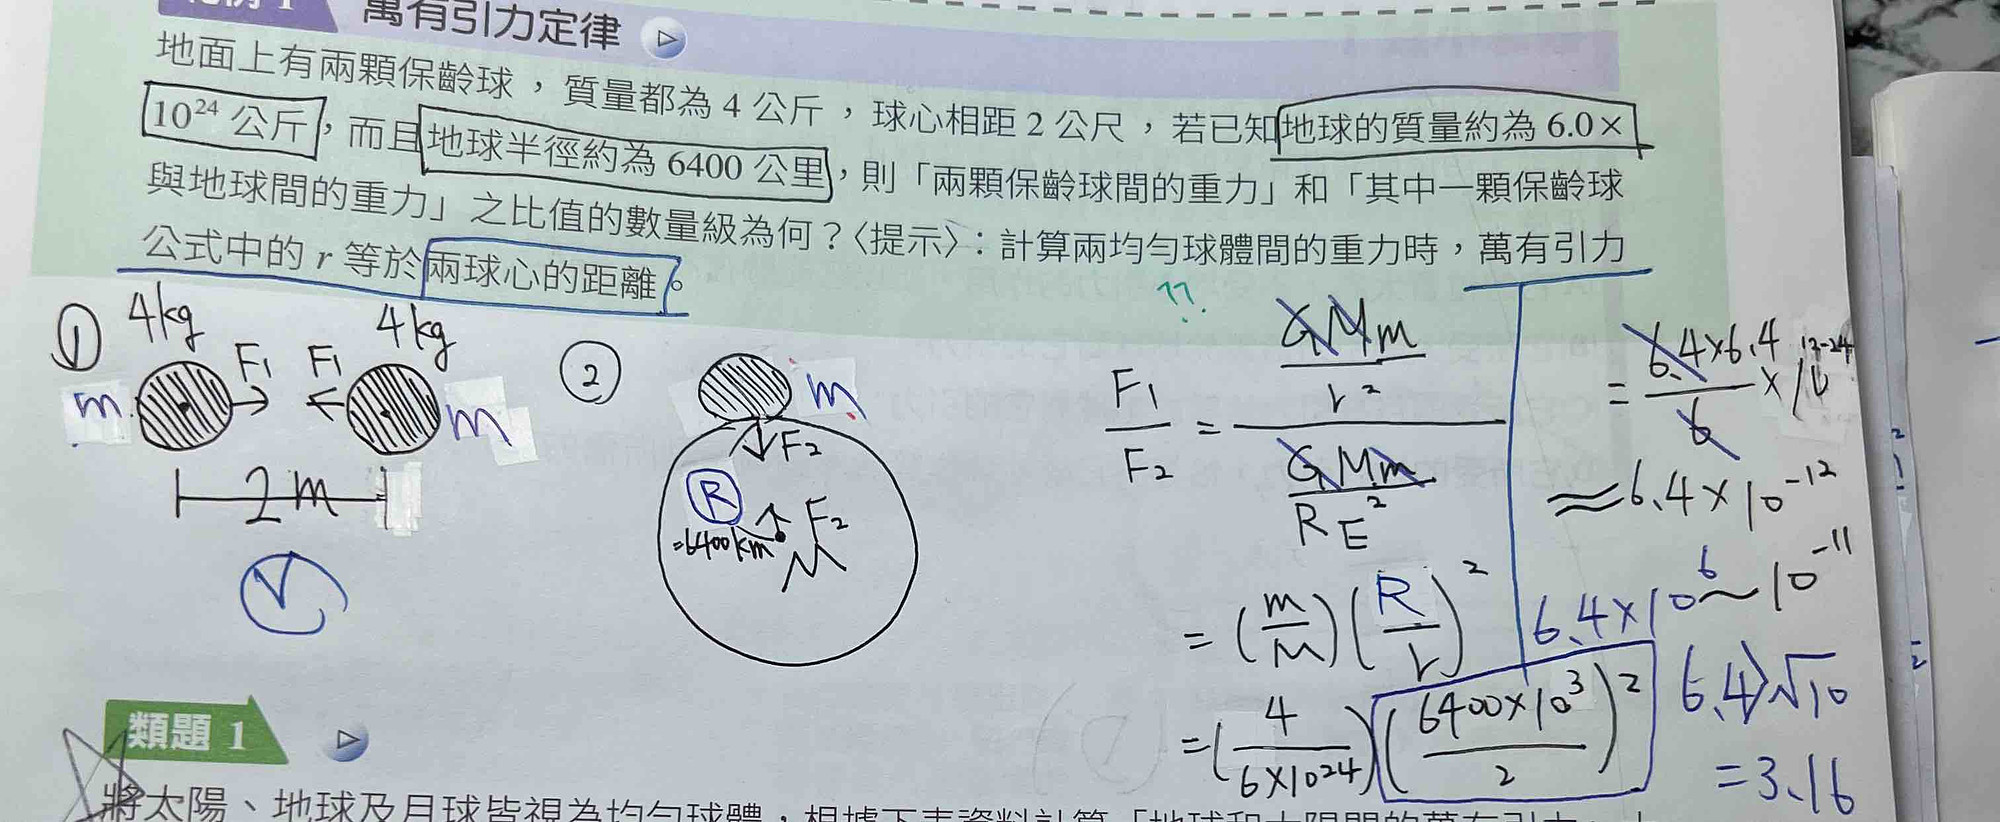 萬有引力定律
地面上有兩顆保齡球，質量都為 4 公斤，球心相距 2 公尺，若已知地球的質量約為 6.0×
10²⁴ 公斤，而且地球半徑約為 6400 公里，則「兩顆保齡球間的重力」和「其中一顆保齡球
與地球間的重力」之比值的數量級為何？〈提示〉：計算兩均勻球體間的重力時，萬有引力
公式中的 r 等於兩球心的距離。
① 4kg 4kg
F₁ F₁
m m
2m
②
m
F₂
R
=6400km
F₂
M
??
F₁/F₂ = (GMm/r²)/(GMm/R_E²)
= (m/M)(R/r)²
= (4/6×10²⁴)(6400×10³/2)²
= 6.4×6.4/6 × 10¹²⁻²⁴
≈ 6.4×10⁻¹²
~10⁻¹¹
6.4×10⁶
6.4>√10
=3.16
類題 1
將太陽、地球及月球皆視為均勻球體，根據下表資料計算「地球和太陽間的萬有引力